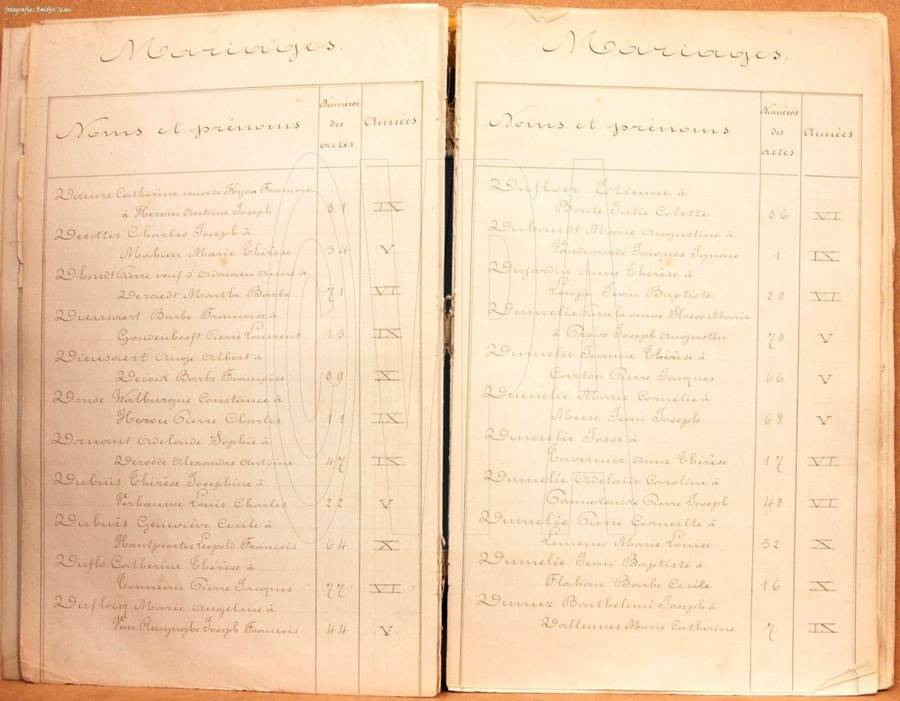 fotografie: Boidin Jean
Mariages.
Noms et prénoms
Numéros
des
actes
Années
Catherine, veuve de Hyon François
à Hervin Antoine Joseph 31 IX
Deritter Charles Joseph à
Mahieu Marie Thérèse 54 V
Dhondt Pierre, veuf d'Adriaen Anne à
Deraedt Marthe Barbe 71 VI
Dieusaert Barbe Françoise à
Goudenhooft Pierre Laurent 15 IX
Dieusaert Ange Albert à
Decock Barbe Françoise 39 X
Donse Walburgue Constance à
Herou Pierre Charles 11 IX
Druant Adelaide Sophie à
Derode Alexandre Antoine 47 IX
Dubuis Thérèse Joséphine à
Verbauwe Louis Charles 22 V
Dubuis Geneviève Cecile à
Hautpearter Leopold François 64 X
Duflo Catherine Thérèse à
Tonneau Pierre Jacques 77 VI
Duflocq Marie Angeline à
Van Renynghe Joseph François 44 V
Mariages.
Noms et prénoms
Numéros
des
actes
Années
Dufloer Etienne à
Bonte Julie Colette 36 VI
Duhoudt Marie Augustine à
Vandevoorde Jacques Ignace 1 IX
Dujardin Anne Thérèse à
Jean Baptiste 20 VI
Dumelie veuve Flasse Marie
à Provo Joseph Augustin 70 V
Dumelie Jeanne Thérèse à
Cardon Pierre Jacques 66 V
Dumelie Marie Cornélie à
Meese Jean Joseph 68 V
Dumelie Josse à
Tavernier Anne Thérèse 17 VI
Dumelie Adelaide Caroline à
Vannexoucke Pierre Joseph 40 VI
Dumelie Pierre Corneille à
Marie Louise 52 X
Dumelie Jean Baptiste à
Flahau Barbe Cecile 16 X
Dumez Barthelemi Joseph à
Dalleunes Marie Catherine 7 IX